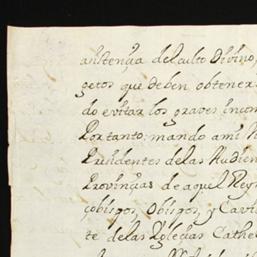 asistençia del culto Divino,
getos que deben obtener
do evitar los graves incon
Por tanto: mando a mi
Presidentes de las Audien
Provinçias de aquel Reyn
çobispos, Obispos, y Cavil
te de las Yglecias Cathe